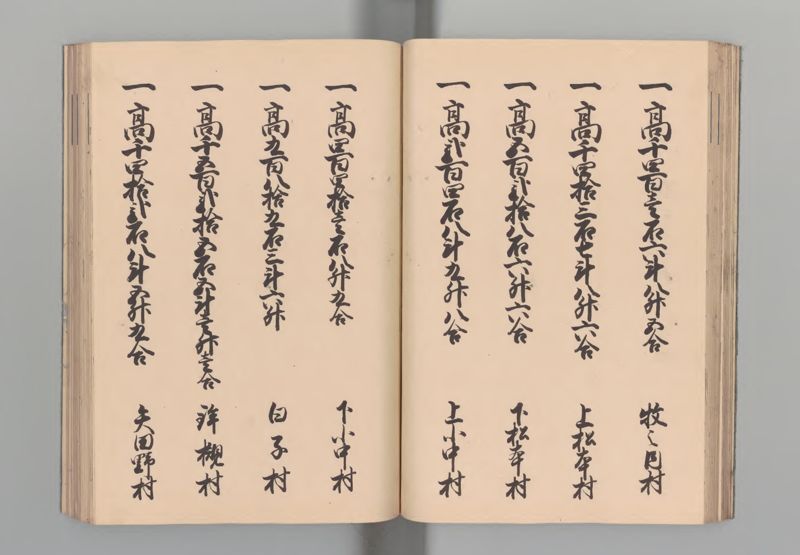 一 高千四百壱石六斗八升五合 牧之内村
一 高千四拾三石七斗八升六合 上松本村
一 高五百弐拾八石六升六合 下松本村
一 高弐百四石八斗九升八合 上小中村
一 高四百四拾壱石八升九合 下小中村
一 高九百八拾九石三斗六升 白子村
一 高千五百弐拾五石五斗壱升壱合 鉾槻村
一 高千四拾弐石八斗五升九合 矢田野村